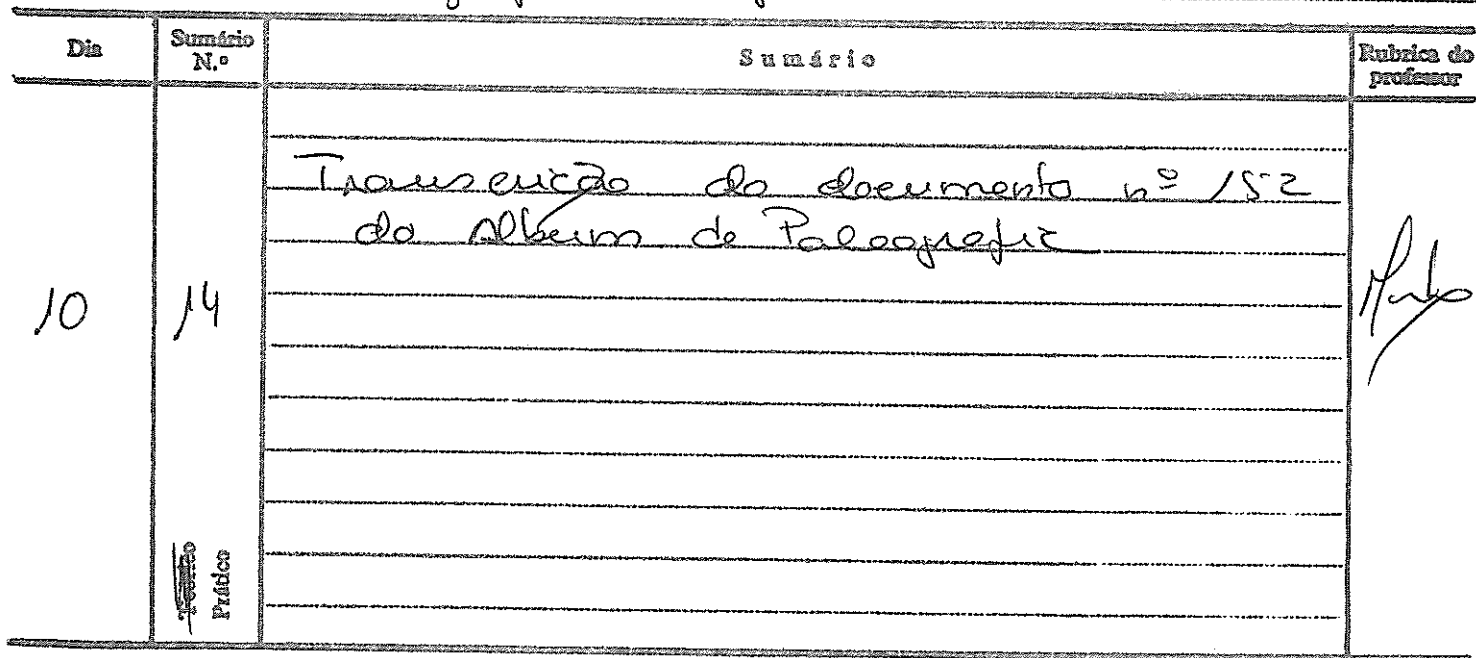 Dia
Sumário N.º
Sumário
Rubrica do professor
10
14
Transcrição do documento nº 152
do Álbum de Paleografia
Teórico
Prático